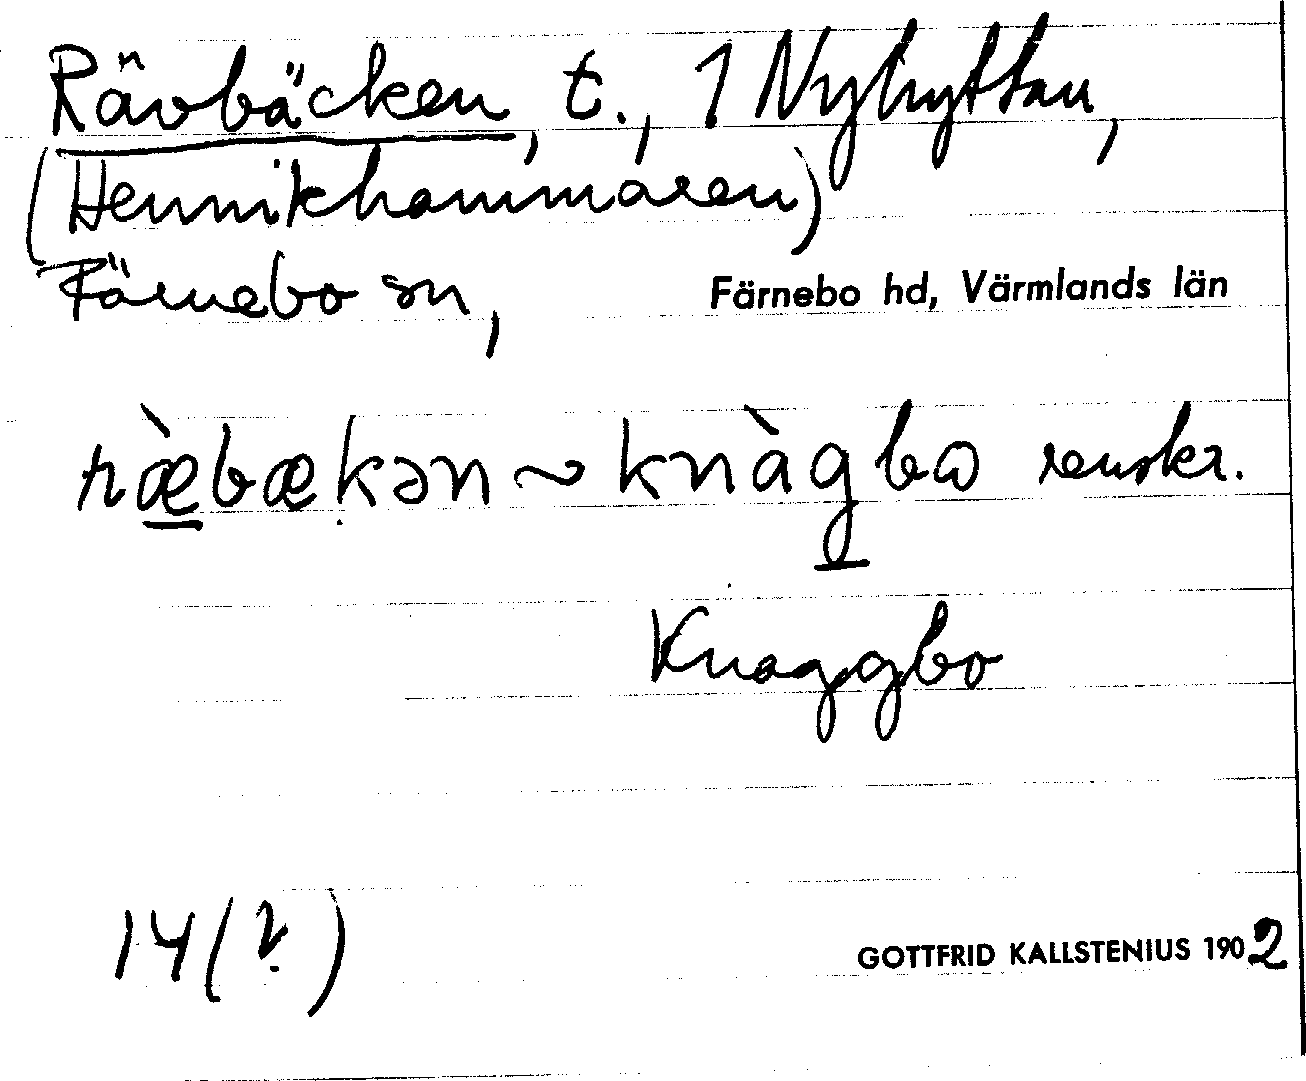 Rävbäcken, t., 1 Nyhyttan,
(Hennikhammaren)
Färnebo sn, Färnebo hd, Värmlands län
ræ̀bækən ~ knàgbɷ renskr.
Knaggbo
14(?) GOTTFRID KALLSTENIUS 1902